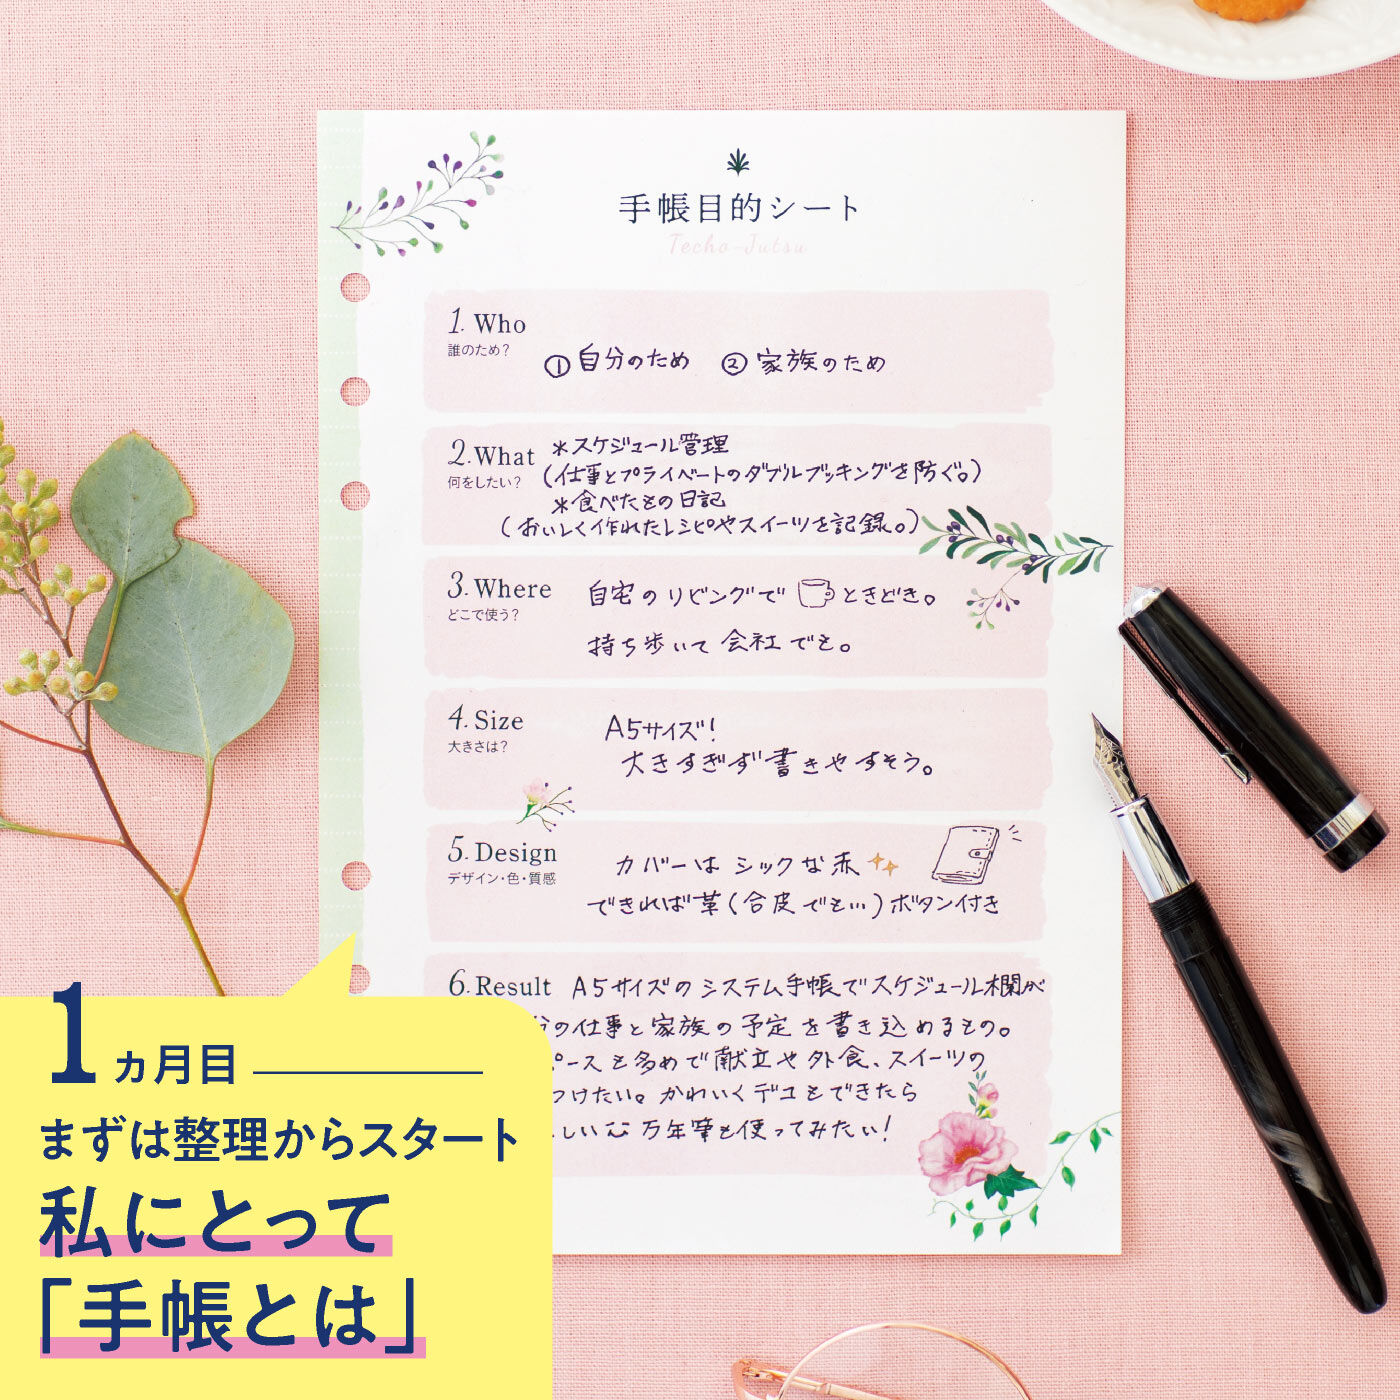 手帳目的シート
Techo-Jutsu
1. Who
誰のため?
① 自分のため ② 家族のため
2. What
何をしたい?
*スケジュール管理
(仕事とプライベートのダブルブッキングを防ぐ。)
*食べたもの日記
(おいしく作れたレシピやスイーツを記録。)
3. Where
どこで使う?
自宅のリビングで ときどき。
持ち歩いて会社でも。
4. Size
大きさは?
A5サイズ!
大きすぎず書きやすそう。
5. Design
デザイン・色・質感
カバーはシックな赤
できれば革(合皮でも…)ボタン付き
6. Result A5サイズのシステム手帳でスケジュール欄が
の仕事と家族の予定を書き込めるもの。
ースも多めで献立や外食、スイーツの
つけたい。かわいくデコもできたら
しい 万年筆も使ってみたい!
1ヵ月目
まずは整理からスタート
私にとって
「手帳とは」